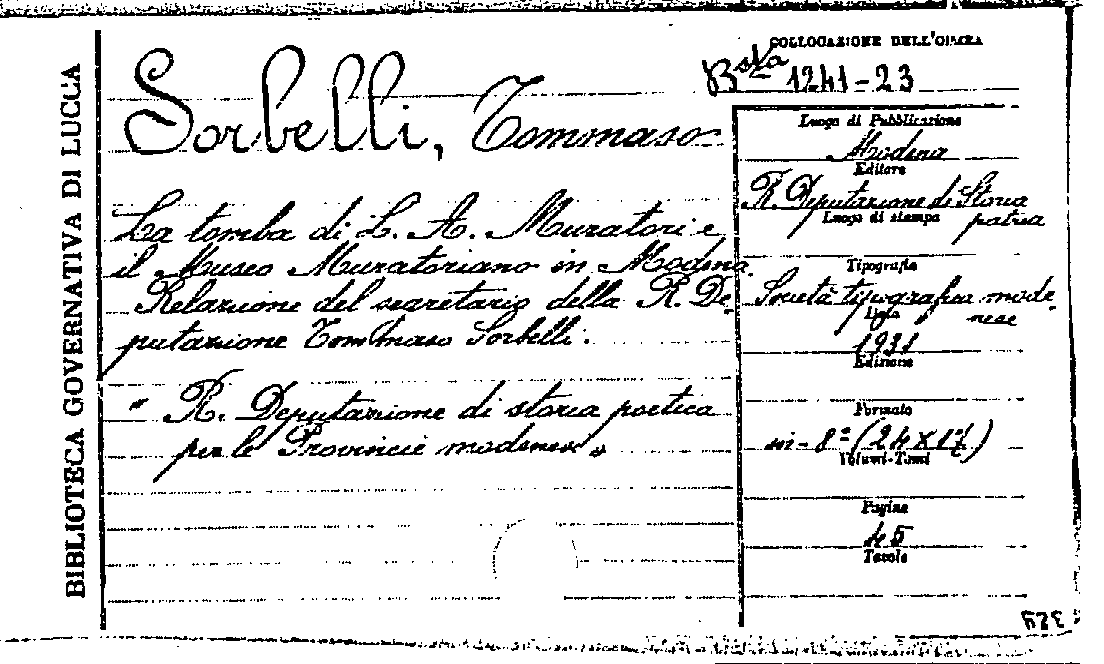 BIBLIOTECA GOVERNATIVA DI LUCCA
COLLOCAZIONE DELL'OPERA
Bsta 1241-23
Sorbelli, Tommaso
La tomba di L. A. Muratori e
il Museo Muratoriano in Modena.
Relazione del segretario della R. De-
putazione Tommaso Sorbelli.
" R. Deputazione di storia poetica
per le Provincie modenesi "
Luogo di Pubblicazione
Modena
Editore
R. Deputazione di Storia
patria
Luogo di stampa
Tipografia
Società tipografica mode-
nese
Data
1931
Edizione
Formato
in-8° (24x17)
Volumi-Tomi
Pagine
45
Tavole